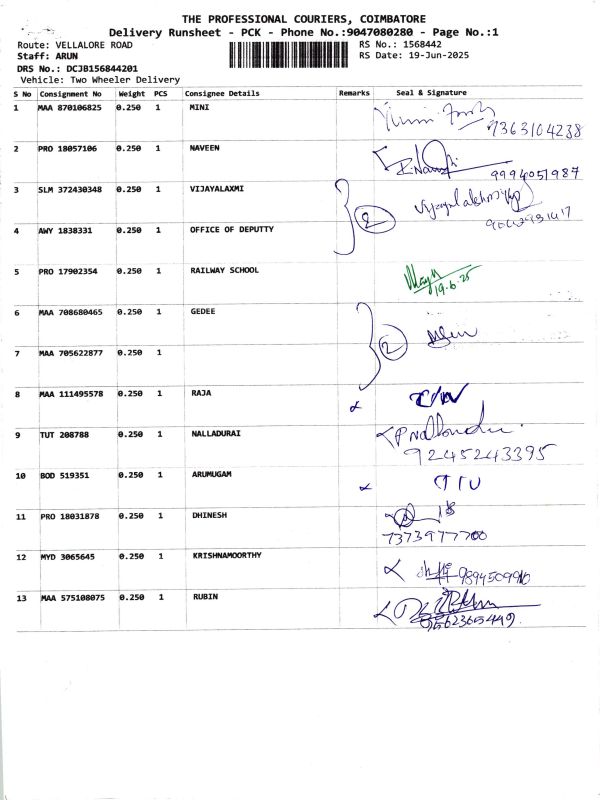 THE PROFESSIONAL COURIERS, COIMBATORE
Delivery Runsheet - PCK - Phone No.:9047080280 - Page No.:1
Route: VELLALORE ROAD
RS No.: 1568442
Staff: ARUN
RS Date: 19-Jun-2025
DRS No.: DCJB156844201
Vehicle: Two Wheeler Delivery
S No Consignment No Weight PCS Consignee Details Remarks Seal & Signature
1 MAA 870106825 0.250 1 MINI
7363104238
2 PRO 18057106 0.250 1 NAVEEN
9994051987
3 SLM 372430348 0.250 1 VIJAYALAXMI
2
4 AWY 1838331 0.250 1 OFFICE OF DEPUTTY
5 PRO 17902354 0.250 1 RAILWAY SCHOOL
19.6.25
6 MAA 708680465 0.250 1 GEDEE
2
7 MAA 705622877 0.250 1
8 MAA 111495578 0.250 1 RAJA
9 TUT 208788 0.250 1 NALLADURAI
9245243395
10 BOD 519351 0.250 1 ARUMUGAM
11 PRO 18031878 0.250 1 DHINESH
7373977700
12 MYD 3065645 0.250 1 KRISHNAMOORTHY
13 MAA 575108075 0.250 1 RUBIN